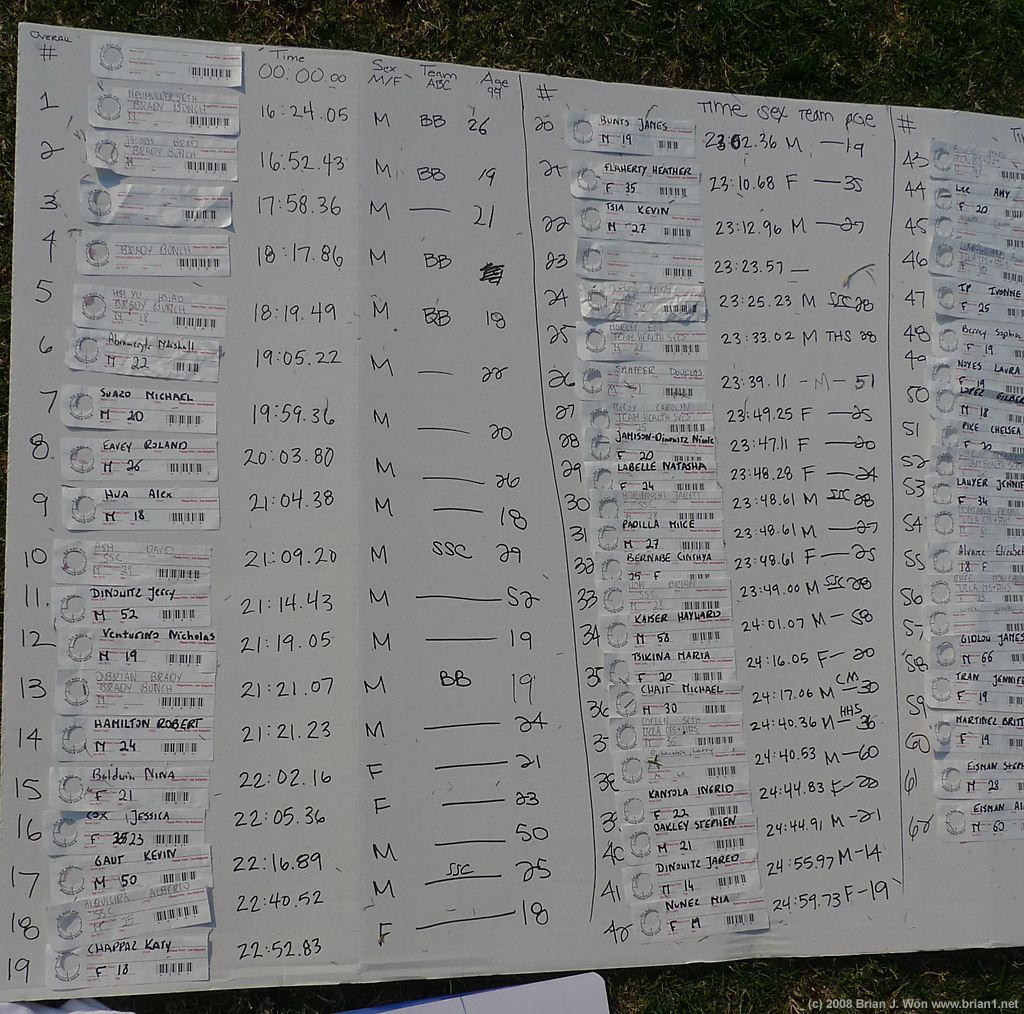 OVERALL
# Time Sex Team Age
00:00.00 M/F ABC 99
1 NEUMULLER SETH BRADY BUNCH M 16:24.05 M BB 26
2 JACOBS BRAD BRADY BUNCH M 16:52.43 M BB 19
3 17:58.36 M — 21
4 BRADY BUNCH 18:17.86 M BB
5 HSIYU HSIAO BRADY BUNCH M 18 18:19.49 M BB 18
6 Marshall M 22 19:05.22 M — 22
7 SUAZO MICHAEL M 20 19:59.36 M — 20
8. EAVEY ROLAND M 26 20:03.80 M — 26
9 HUA Alex M 18 21:04.38 M — 18
10 HSH DAVID SSC M 29 21:09.20 M SSC 29
11. DINOWITZ Jerry M 52 21:14.43 M — 52
12 Venturino Nicholas M 19 21:19.05 M — 19
13 OBRIAN BRADY BRADY BUNCH M 21:21.07 M BB 19
14 HAMILTON ROBERT M 24 21:21.23 M — 24
15 Baldwin NINA F 21 22:02.16 F — 21
16 COX JESSICA F 23 22:05.36 F — 23
17 GAUT KEVIN M 50 22:16.89 M — 50
18 ALBERTO SSC M 25 22:40.52 M SSC 25
19 CHAPPAZ KATY F 18 22:52.83 F — 18
# Time sex Team Age
20 BUNTS JAMES M 19 23:02.36 M — 19
21 FLAHERTY HEATHER F 35 23:10.68 F — 35
22 TSIA KEVIN M 27 23:12.96 M — 27
23 23:23.57 —
24 23:25.23 M SSC 28
25 MORLEY ERIC TEAM HEALTH SVCS 23:33.02 M THS 28
26 SHAFFER DOUGLAS M 23:39.11 - M - 51
27 MCCOY CAROLYN TEAM HEALTH SVCS 25 23:49.25 F — 25
28 JAMISON-Dinowitz Nicole F 20 23:47.11 F — 20
29 LABELLE NATASHA F 24 23:48.28 F — 24
30 HORINOUCHI JARETT SSC M 28 23:48.61 M SSC 28
31 PADILLA MIKE M 27 23:48.61 M — 27
32 BERNABE CINTHYA 25 F 23:48.61 F — 25
33 BRIAN SSC M 28 23:49.00 M SSC 28
34 KAISER HAYWARD M 58 24:01.07 M — 58
35 TSIKINA MARIA F 20 24:16.05 F — 20
36 CHAIT MICHAEL M 30 24:17.06 M CM — 30
37 COELEN SETH UCLA CTS+HHS M 36 24:40.36 M HHS — 36
38 24:40.53 M — 60
39 KANTOLA INGRID F 22 24:44.83 F — 20
40 OAKLEY STEPHEN M 21 24:44.91 M — 21
41 DINOWITZ JARED M 14 24:55.97 M - 14
42 NUNEZ MIA F 19 24:59.73 F - 19
#
43
44 Lee AMY F 20
45
46
47 IP IVONNE F 25
48 Berrey Sophia F 19
49 NOYES LAURA F 19
50 LOPEZ GILBER M 18
51 PIKE CHELSEA F 20
52
53 LAWYER JENNIF F 34
54
55 Alvarez Elizabet 18 F
56
57
58 GIDLOW JAMES M 66
59 TRAN JENNIFE F 19
60 MARTINEZ BRITT F 19
61 EISMAN STEP M 28
62 EISMAN Al M 60
(c) 2008 Brian J. Won www.brian1.net